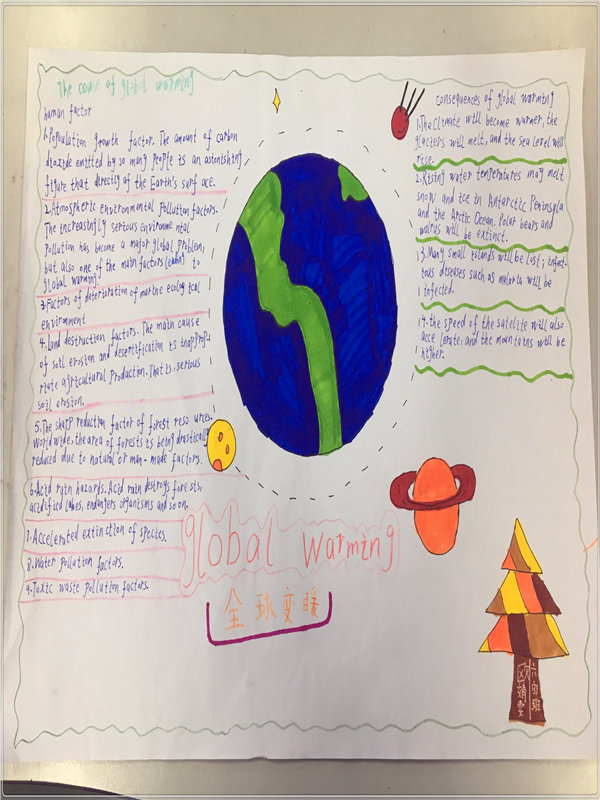 The cause of global warming
human factor
1.Population growth factor. The amount of carbon
dioxide emitted by so many people is an astonishing
figure that directly of the Earth's surf ace.
2.Atmospheric environmental pollution factors.
The increasingly serious environme ntal
pollution has become a major global problem,
but also one of the main factors leading to
global warming.
3.Factors of deterioration of marine ecolog ical
environment
4.land destruction factors. The main cause
of soil erosion and desertification is inapprop-
riate agricultural production. That is, serious
soil erosion.
5.The sharp reduction factor of forest reso urces.
World wide, the area of forests is being drastically
reduced due to natural or man-made factors.
6.Acid rain hazards. Acid rain destroys forests,
acidified lakes, endangers organisms and so on.
7.Accelerated extinction of species.
8.Water pollution factors.
9.Toxic waste pollution factors.
consequences of global warming
1.The Climate will become warmer, the
glaciers will melt, and the sea level will
rise.
2.Rising water temperatures may melt
snow and ice in Antarctic Peninsula
and the Arctic Ocean. Polar bears and
walrus will be extinct.
3.Many small islands will be lost; infect-
ious diseases such as malaria will be
infected.
4.the speed of the satellite will also
acce lerate. and the mountains will be
higher.
global warming
全球变暖
六四班
欧婧雯